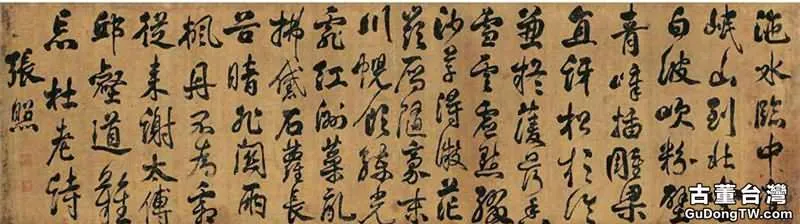 沲水臨中
岷山到北
白波吹粉壁
青峰插雕梁
直訝松杉冷
兼疑菱荇香
雪雲虛點綴
沙草得微茫
嶺雁隨豪末
川蜺飲練光
霏紅洲蘂亂
拂黛石蘿長
谷暗非關雨
楓丹不為霜
從來謝太傅
邱壑道難
忘杜老詩
張照
古董台灣
GuDongTW.com